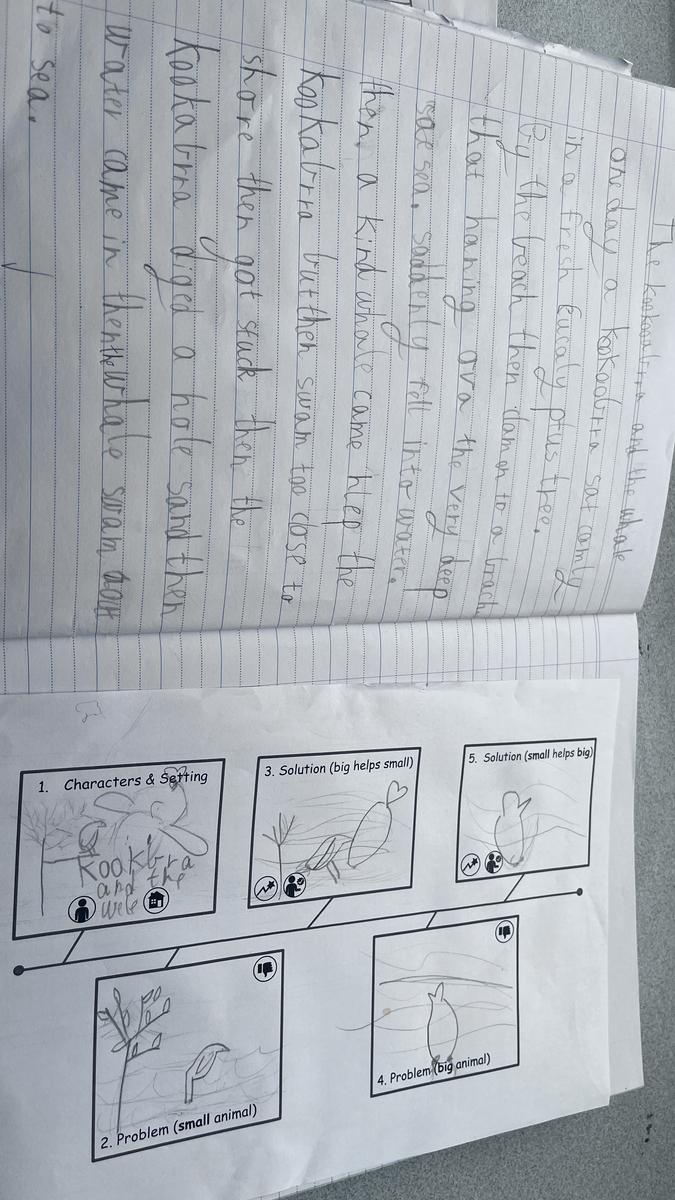 The kookoobrra and the whale
one day a kokoobrra sat camly
in a fresh Eucalyptus tree.
By the beach then damen to a brach
that haning ova the very deep
sae sea. saddenly fell into water.
then, a kind whale came hlep the
kookabrra but then swam too close to
shore then got stuck then the
kookabrra diged a hole sand then
water came in then the whale swam out
to sea.
1. Characters & Setting
Kookbra
and the
wele
2. Problem (small animal)
3. Solution (big helps small)
4. Problem (big animal)
5. Solution (small helps big)